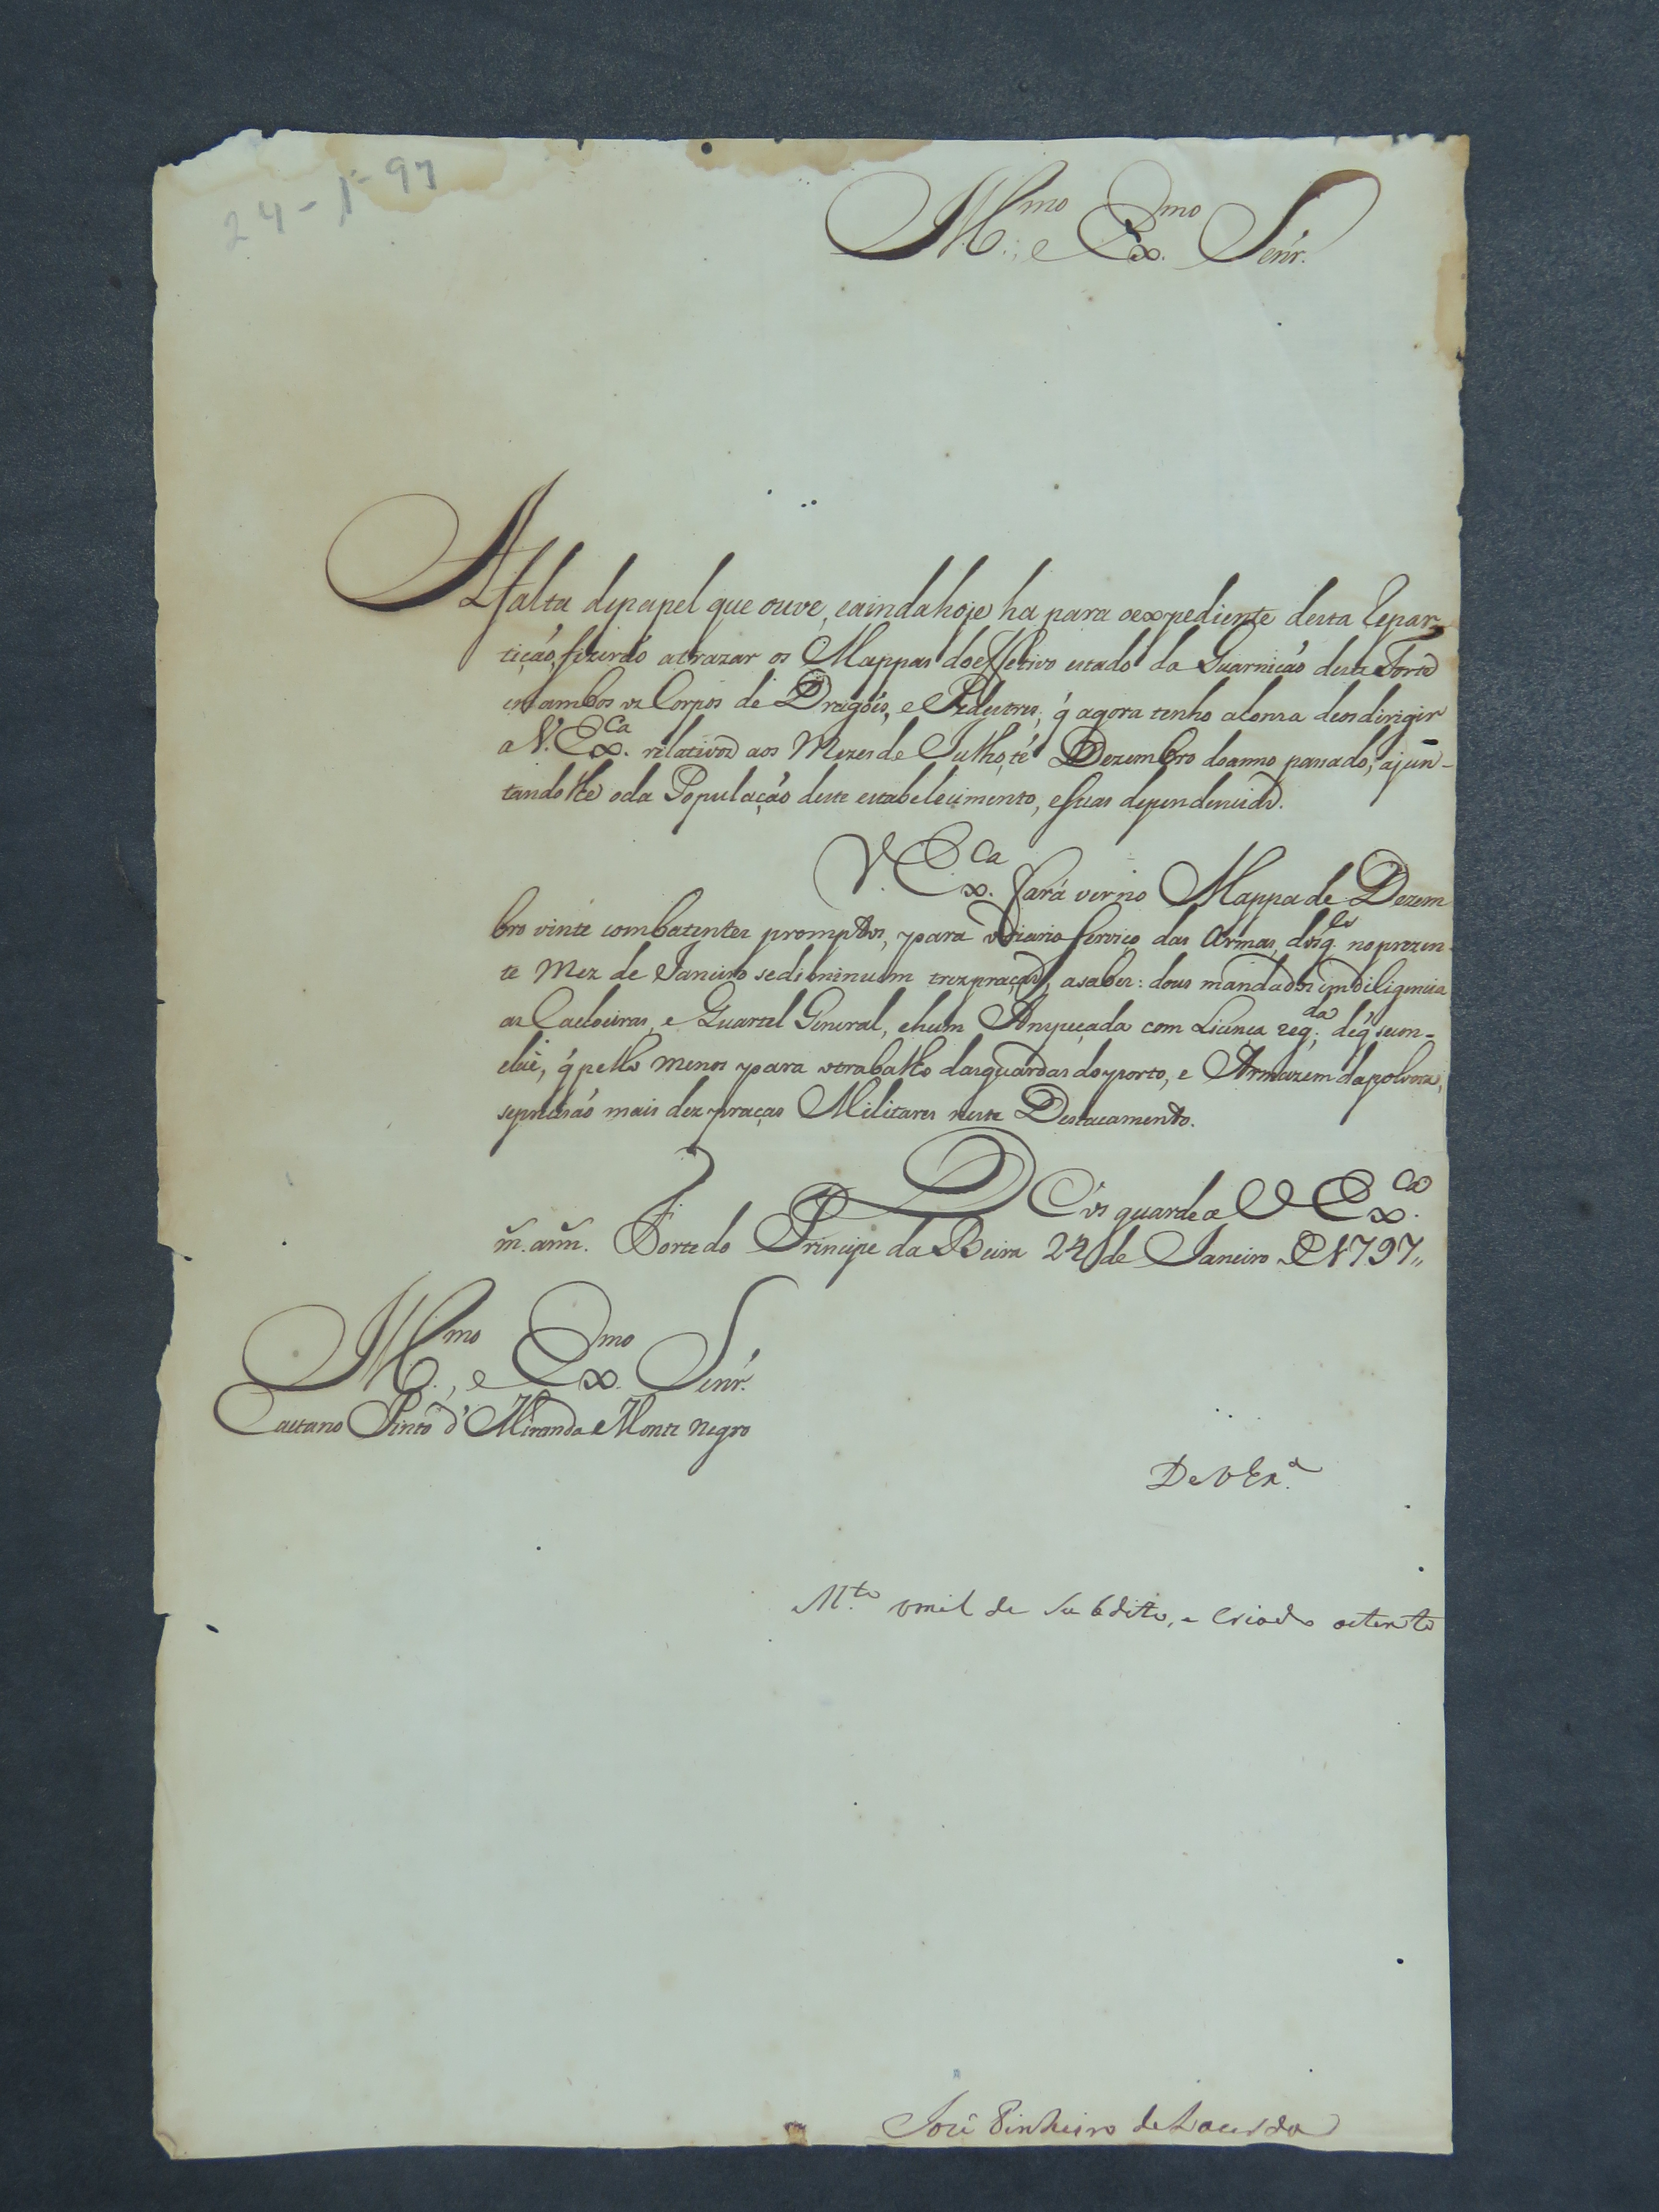 24-1-97
Ill.mo e Ex.mo Senr.
A falta depapel que ouve, eaindahoje ha para oexpediente desta Repar-
tiçaó, fizeraó atrazar os Mappas doeffetivo estado da Guarniçaó deste Forte
em ambos os Corpos de Dragoés, e Pedestres, q̃ agora tenho ahonra deosdirigir
a V. Ex.ca relativos aos Mezes de Julho, té Dezembro doanno passado, ajun-
tandolhe oda Populaçaó deste estabelecimento, esuas dependencias.
V. Ex.ca fará ver no Mappa de Dezem
bro vinte combatentes promptos, para odiario serviço das Armas, dos q.es noprezen-
te Mez de Janeiro sediminuem trez praças, asaber: dous mandados emdiligencia
as Caxoeiras, e Quartel General, ehum Anspeçada com Licença reg.da; deq̃ secon-
clúe, q̃ pello menos para otrabalho dasguardas doporto, e Armazem dapolvora,
sepreciśaó mais dez praças Militares neste Destacamento.
Deos guarde a V. Ex.ca
m. ann. Forte do Principe da Beira 24 de Janeiro de 1797,,
Ill.mo e Ex.mo Senr.
Caetano Pinto d'Miranda e Monte Negro
De V Ex.a
M.to umilde Subdito, e Criado atento
José Pinheiro de Lacerda